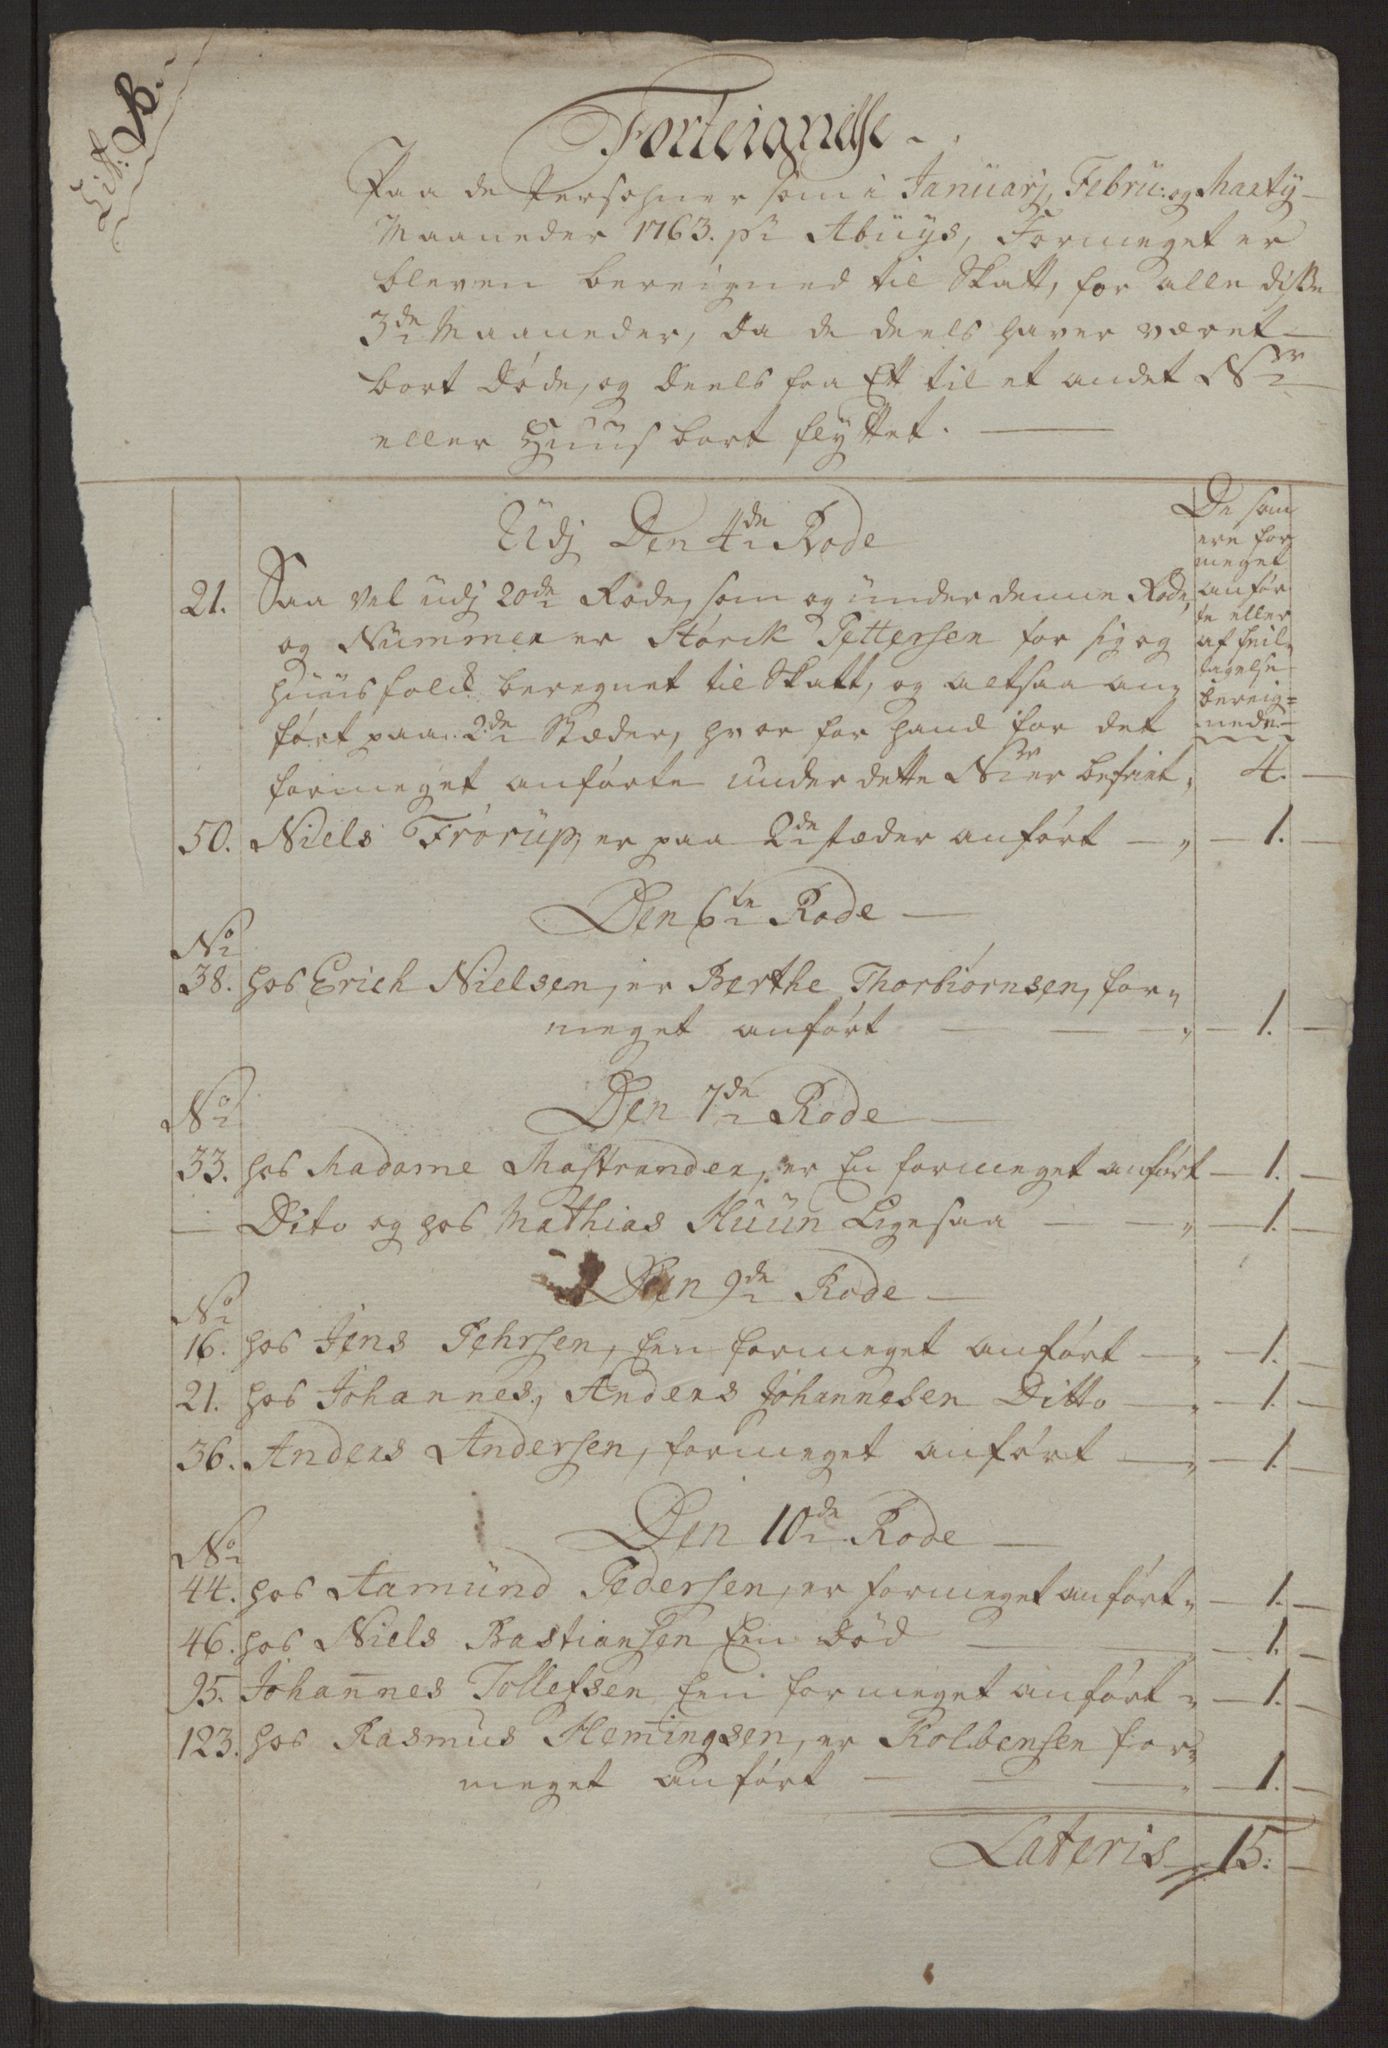 Lit: B.
Forteignelse
Paa de Persohner som i Januarj, Febru: og Marty
Maaneder 1763. pr Abuys, Formeget er
bleven bereigned til Skatt, for alle disse
3de Maaneder, da de deels haver været
bort døde, og deels fra Ett til et andet Nr
eller Huus bort flyttet.
De som
ere for
meget
anfør
te eller
af feil-
tagelse
bereig=
nede.
Udj Den 4de Rode
21. Saa vel udj 20de Rode, som og under denne Rode,
og Nummer er Størck Pettersen for sig og
huusfolck beregnet til Skatt, og altsaa an
ført paa 2de Stæder, hvor for hand for det
formeget anførte under dette Nr er befriet, 4.
50. Niels Frørup, er paa 2de stæder anført 1.
Den 6te Rode
No
38. hos Erich Nielsen, er Berthe Thorbiørnsen, for-
meget anført 1.
Den 7de Rode
No
33. hos Madame Mastrander, er En formeget anført 1.
Dito og hos Mathias Huun Ligesaa 1.
Den 9de Rode
No
16. hos Jens Pehrsen, Een formeget anført 1.
21. hos Johannes, Anders Johannesen Ditto 1.
36. Anders Andersen, formeget anført 1.
Den 10de Rode
No
44. hos Aamund Pedersen, er formeget anført 1.
46. hos Niels Bastiansen Een død 1.
95. Johannes Tollefsen Een formeget anført 1.
123. hos Rasmus Hemingsen, er Kolbensen for-
meget anført 1.
Lateris 15.